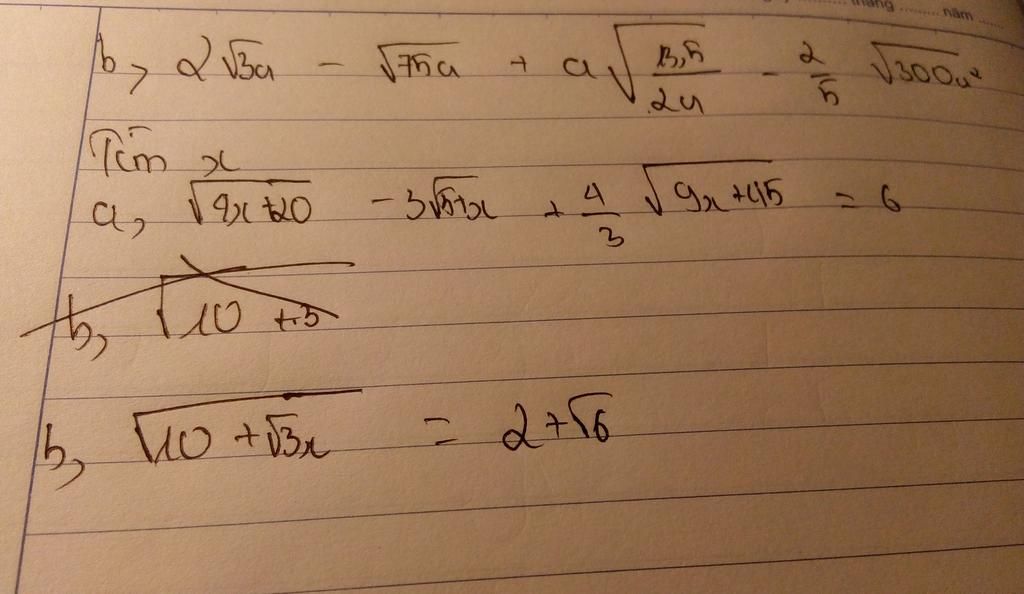 tháng ........ năm .....
b, 2√3a - √75a + a√(13,5/2a) - 2/5 √300a³
Tìm x
a, √4x+20 - 3√5+x + 4/3 √9x+45 = 6
b, √10 + 3
b, √10 + √3x = 2+√6